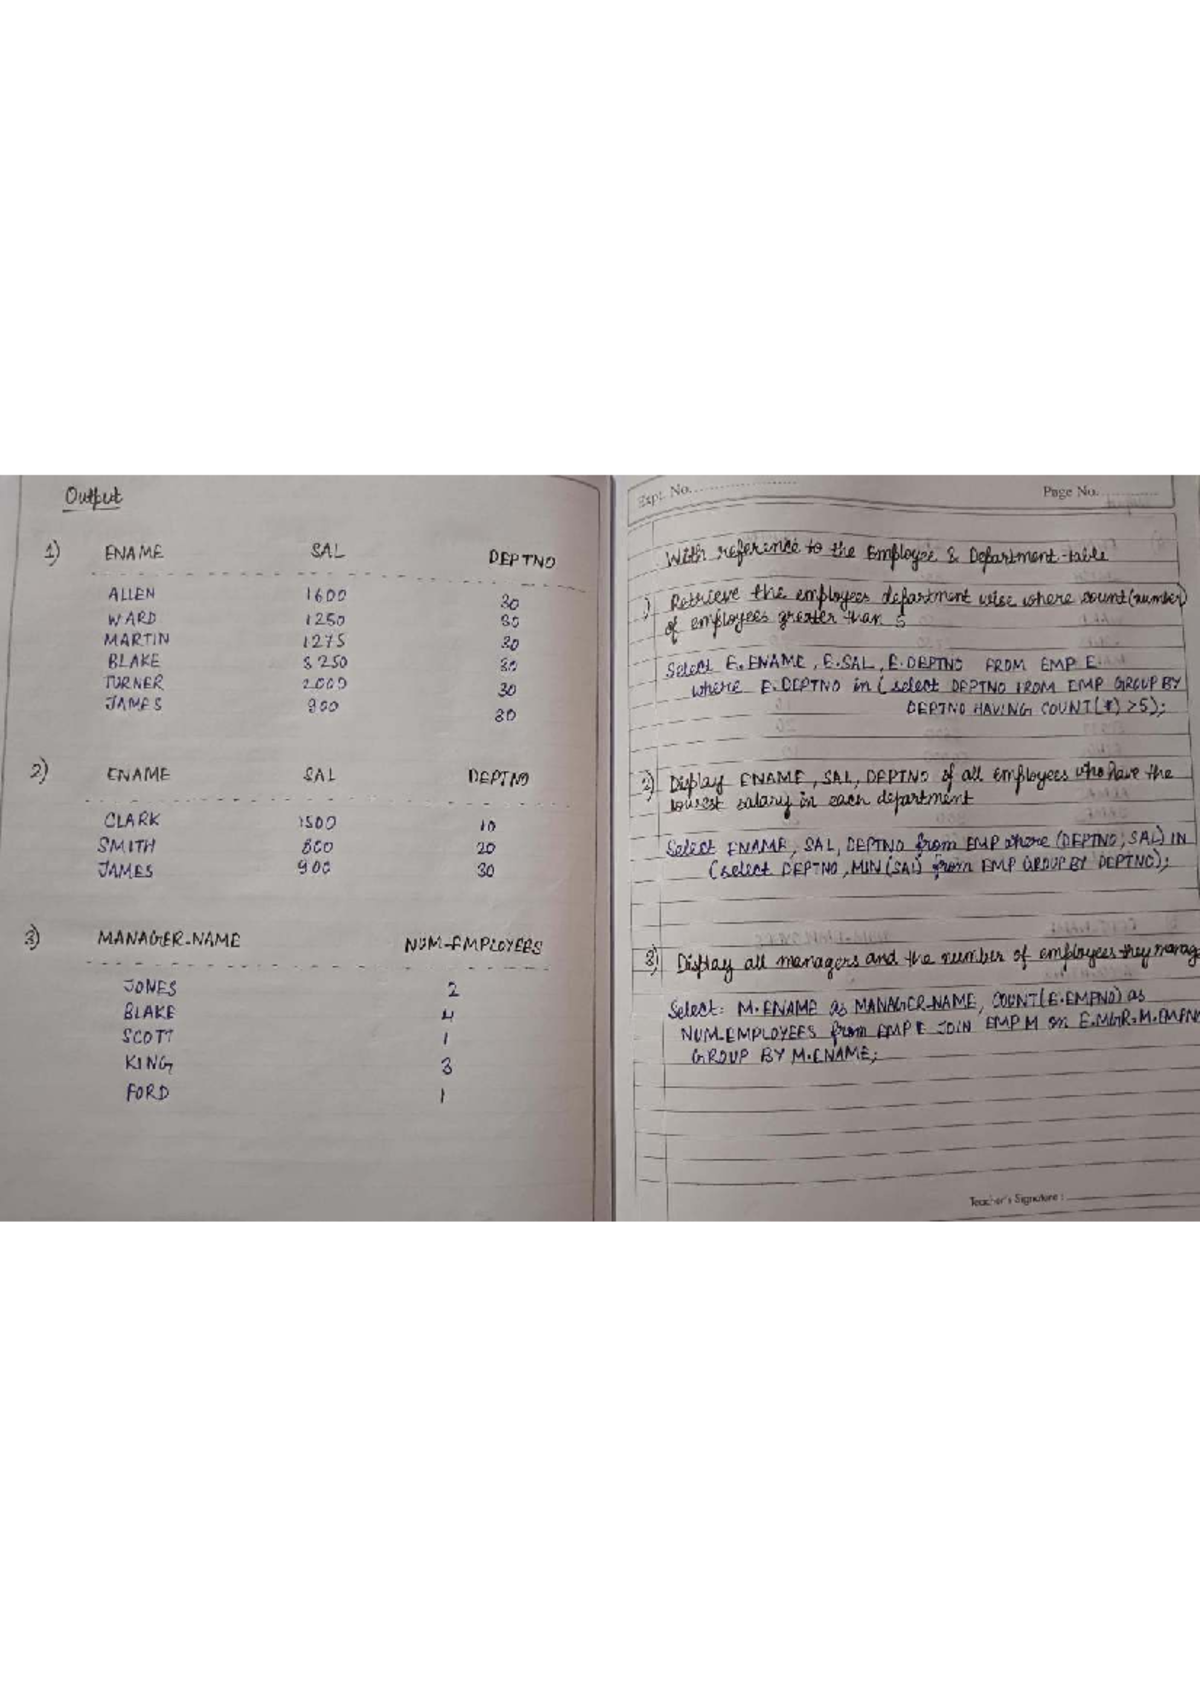 Output
1) ENAME SAL DEPTNO
ALLEN 1600 30
WARD 1250 30
MARTIN 1275 30
BLAKE 8250 30
TURNER 2000 30
JAMES 900 30
2) ENAME SAL DEPTNO
CLARK 1500 10
SMITH 800 20
JAMES 900 30
3) MANAGER-NAME NUM-EMPLOYEES
JONES 2
BLAKE 4
SCOTT 1
KING 3
FORD 1
Expt. No.
Page No.
With reference to the Employee & Department-table
1) Retrieve the employees department wise where count(number)
of employees greater than 5
Select E.ENAME, E.SAL, E.DEPTNO FROM EMP E
where E.DEPTNO in (select DEPTNO FROM EMP GROUP BY
DEPTNO HAVING COUNT(*) >5);
2) Display ENAME, SAL, DEPTNO of all employees who have the
lowest salary in each department
Select ENAME, SAL, DEPTNO from EMP where (DEPTNO, SAL) IN
(select DEPTNO, MIN(SAL) from EMP GROUP BY DEPTNO);
3) Display all managers and the number of employees they manag
Select: M.ENAME as MANAGER-NAME, COUNT(E.EMPNO) as
NUM-EMPLOYEES from EMP E JOIN EMP M on E.MGR=M.EMPN
GROUP BY M.ENAME;
Teacher's Signature :